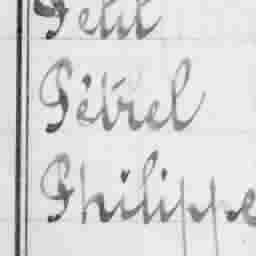 Petit
Pétrel
Philippe